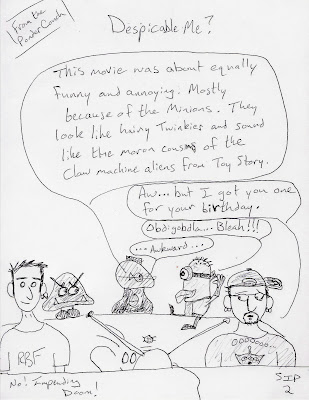 From the
PonderCouch
Despicable Me?
This movie was about equally
funny and annoying. Mostly
because of the Minions. They
look like hairy Twinkies and sound
like the moron cousins of the
claw machine aliens from Toy Story.
Aw... but I got you one
for your birthday.
Obdigobdla... Bleah!!!
...Awkward...
RBF
No! Impending
Doom!
SIP
2